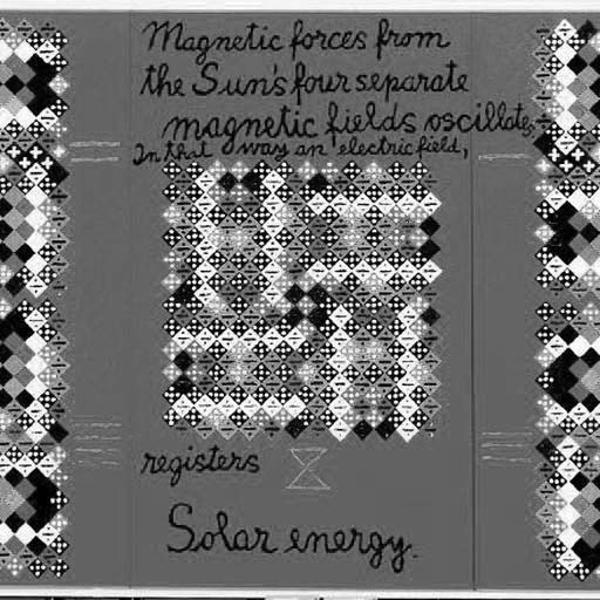 Magnetic forces from
the Sun's four separate
magnetic fields oscillate,
In that way an electric field,
registers
Solar energy.